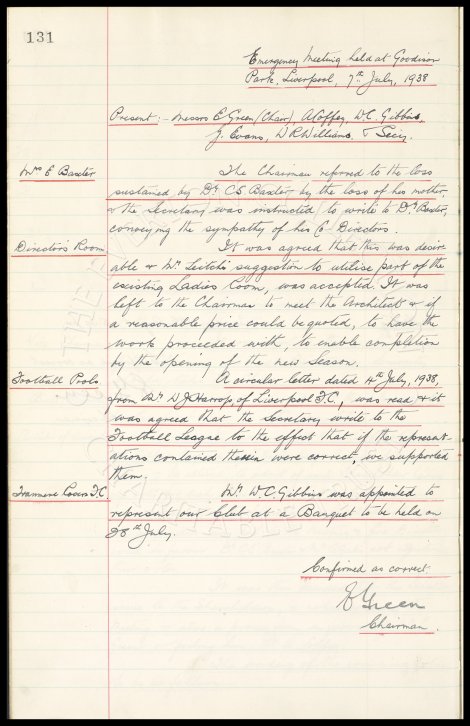 131
Emergency Meeting held at Goodison
Park, Liverpool, 7th July, 1938
Present:- Messrs E Green (Chair), A Coffey, W.C. Gibbins,
J. Evans, W R Williams & Secy.
Mrs E Baxter
The Chairman referred to the loss
sustained by Dr C S Baxter by the loss of his mother,
& the Secretary was instructed to write to Dr Baxter,
conveying the sympathy of his Co-Directors.
Directors Room
It was agreed that this was desir-
able & Mr Leitch's suggestion to utilise part of the
existing Ladies Room, was accepted. It was
left to the Chairman to meet the Architect & if
a reasonable price could be quoted, to have the
work proceeded with, to enable completion
by the opening of the new Season.
Football Pools
A circular letter dated 4th July, 1938,
from Mr W J Harrop, of Liverpool F.C., was read & it
was agreed that the Secretary write to the
Football League to the effect that if the represent-
ations contained therein were correct, we supported
them.
Tranmere Rovers F.C.
Mr W.C. Gibbins was appointed to
represent our Club at a Banquet to be held on
28th July.
Confirmed as correct.
E Green
Chairman.